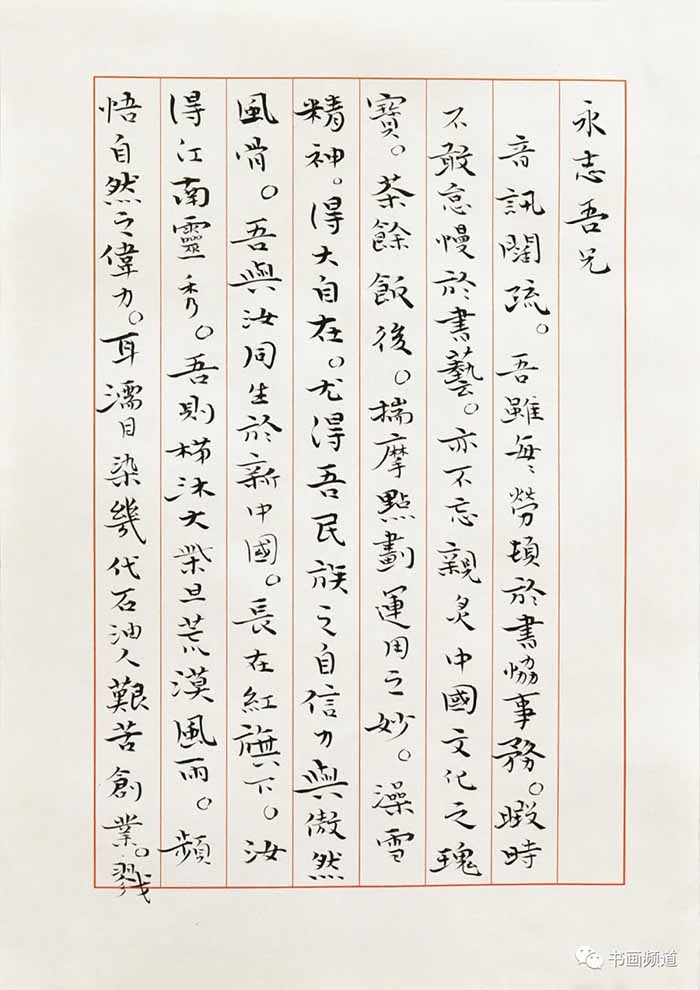 永志吾兄
音訊闊疏。吾雖每勞頓於書協事務。暇時
不敢怠慢於書藝。亦不忘親炙中國文化之瑰
寶。茶餘飯後。揣摩點劃運用之妙。澡雪
精神。得大自在。尤得吾民族之自信力與傲然
風骨。吾與汝同生於新中國。長在紅旗下。汝
得江南靈秀。吾則櫛沐大柴旦荒漠風雨。頻
悟自然之偉力。耳濡目染幾代石油人艱苦創業。戮
书画频道